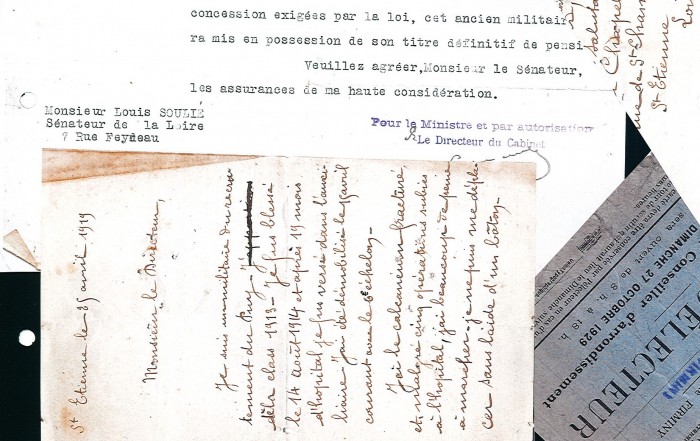 concession exigées par la loi, cet ancien militair
ra mis en possession de son titre définitif de pensi
Veuillez agréer,Monsieur le Sénateur,
les assurances de ma haute considération.
Monsieur Louis SOULIÉ
Sénateur de la Loire
7 Rue Feydeau
Pour le Ministre et par autorisation
Le Directeur du Cabinet
St Etienne le 25 avril 1919
Monsieur le Directeur,
Je suis un militaire du recru
tement du Puy.
de la class 1913 - Je fus blessé
le 14 Août 1914 et après 19 mois
d'hopital je fus versé dans l'auxi
liaire J'ai été démobilisé le avril
courant avec le échelon -
J'ai le calcanéum fracturé,
et malgré cinq opérations subies
à l'hopital, j'ai beaucoup de peine
à marcher - je ne puis me dépla
cer sans l'aide d'un bâton -
salutat
St Etienne
Loi
Conseiller d'arrondissement
DIMANCHE 27 OCTOBRE 1929
ouvert de 8 h. à 18 h.
ELECTEUR
FIRMINY